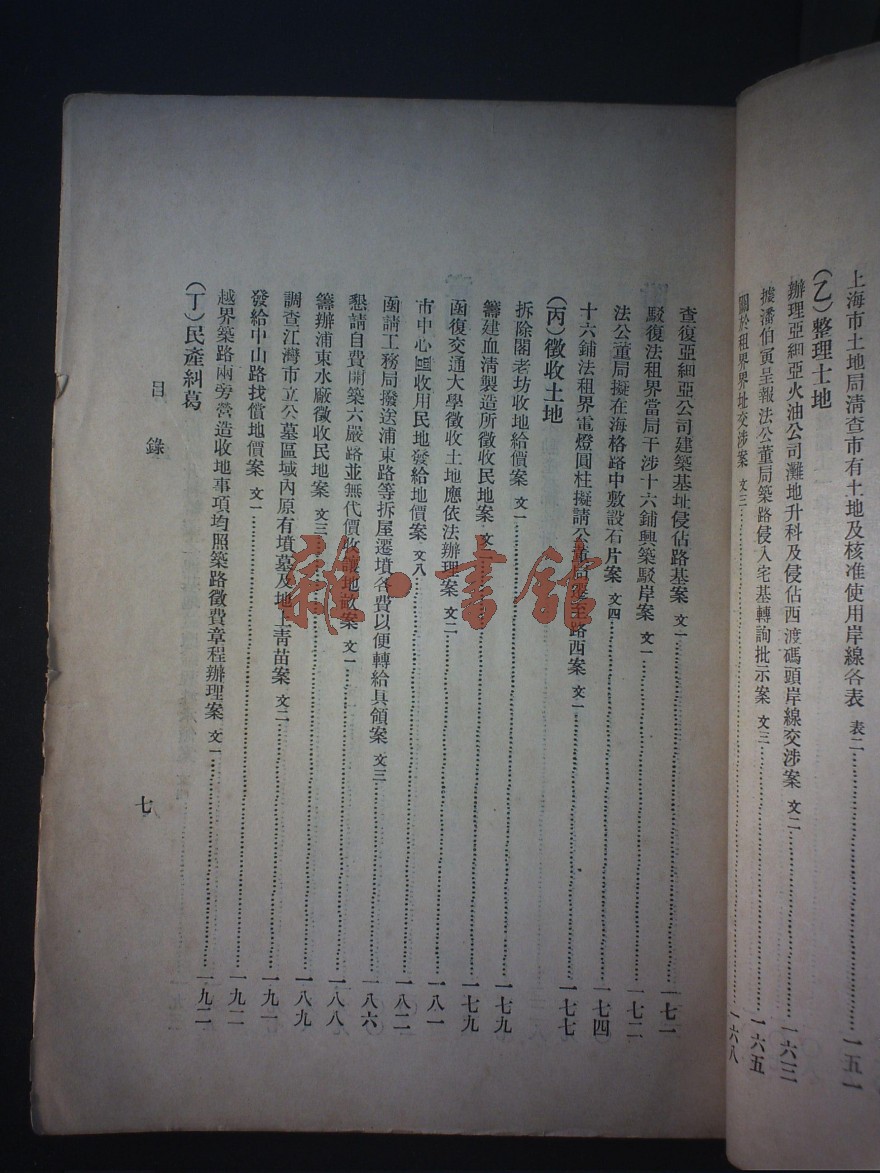 上海市土地局清查市有土地及核准使用岸線各表 表二 一五一
(乙)整理土地
辦理亞細亞火油公司灘地升科及侵佔西渡碼頭岸線交涉案 文二 一六三
據潘伯寅呈報法公董局築路侵入宅基轉詢批示案 文三 一六五
關於租界界址交涉案 文三 一六八
查復亞細亞公司建築基址侵佔路基案 文一 一七一
駁復法租界當局干涉十六鋪興築駁岸案 文一 一七二
法公董局擬在海格路中敷設石片案 文四 一七四
十六鋪法租界電燈圓柱擬請公董局遷至路西案 文一 一七七
(丙)徵收土地
拆除閣老坊收地給價案 文一 一七九
籌建血清製造所徵收民地案 文 一七九
函復交通大學徵收土地應依法辦理案 文二 一八一
市中心區收用民地發給地價案 文八 一八二
函請工務局撥送浦東路等拆屋遷墳各費以便轉給具領案 文三 一八六
懇請自費開築六嚴路並無代價收讓地畝案 文一 一八八
籌辦浦東水廠徵收民地案 文三 一八九
調查江灣市立公墓區域內原有墳墓及地上青苗案 文二 一九一
發給中山路找償地價案 文一 一九一
越界築路兩旁營造收地事項均照築路徵費章程辦理案 文一 一九二
(丁)民產糾葛
目錄
七
雜·書館